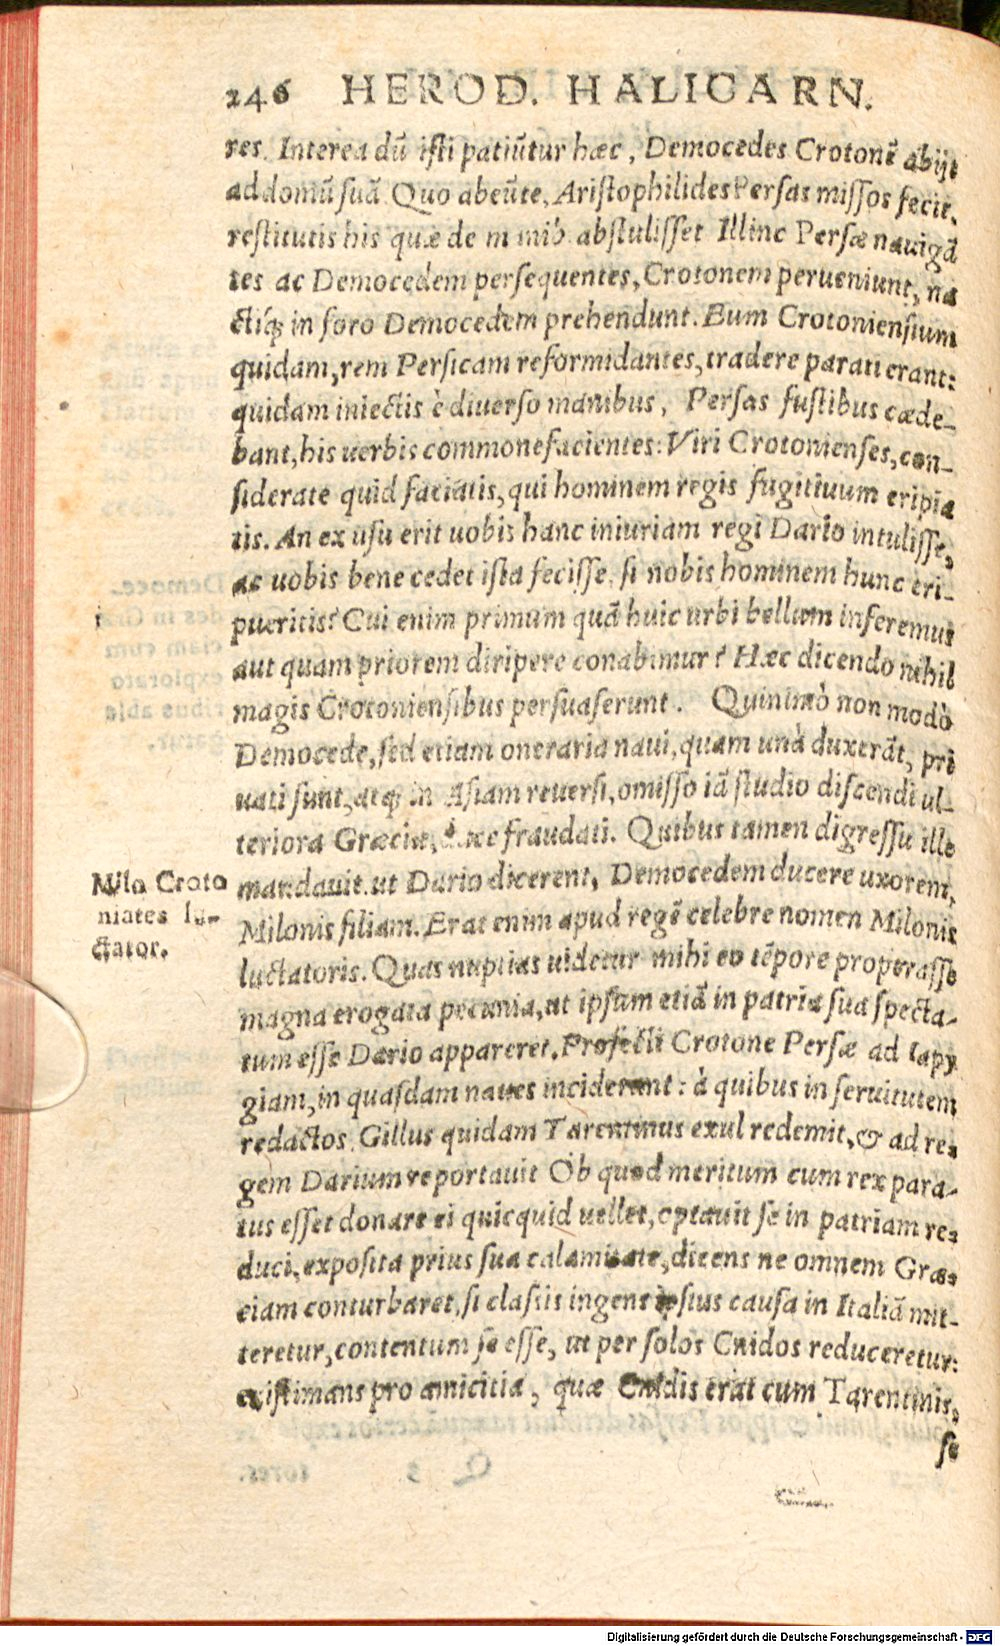 246 HEROD. HALICARN.
res. Interea dū isti patiūtur hæc, Democedes Crotonē abijt
ad domū suā Quo abeūte, Aristophilides Persas missos fecit,
restitutis his quæ de abstulisset Illinc Persæ nauigā
tes ac Democedem persequentes, Crotonem perueniunt, na
ctiq́; in foro Democedem prehendunt. Eum Crotoniensium
quidam, rem Persicam reformidantes, tradere parati erant:
quidam iniectis è diuerso manibus, Persas fustibus cæde-
bant, his uerbis commonefacientes: Viri Crotonienses, con-
siderate quid faciatis, qui hominem regis fugitiuum eripia
tis. An ex usu erit uobis hanc iniuriam regi Dario intulisse,
ac uobis bene cedet ista fecisse, si nobis hominem hunc eri-
pueritis? Cui enim primum quā huic urbi bellum inferemus
aut quam priorem diripere conabimur? Hæc dicendo nihil
magis Crotoniensibus persuaserunt. Quinimò non modò
Democede, sed etiam oneraria naui, quam unà duxerāt, pri
uati sunt, atq; in Asiam reuersi, omisso iā studio discendi ul-
teriora Græciæ, fraudati. Quibus tamen digressu ille
mandauit ut Dario dicerent, Democedem ducere uxorem,
Milonis filiam. Erat enim apud regē celebre nomen Milonis
luctatoris. Quas nuptias uidetur mihi eo tēpore properasse
magna erogata pecunia, ut ipsum etiā in patria sua specta-
tum esse Dario appareret. Profecti Crotone Persæ ad Iapy
giam, in quasdam naues inciderunt: à quibus in seruitutem
redactos Gillus quidam Tarentinus exul redemit, & ad re-
gem Darium reportauit Ob quod meritum cum rex para-
tus esset donare ei quicquid uellet, optauit se in patriam re-
duci, exposita prius sua calamitate, dicens ne omnem Græ-
ciam conturbaret, si classis ingens ipsius causa in Italiā mit-
teretur, contentum se esse, ut per solos Cnidos reduceretur:
existimans pro amicitia, quæ Cnidis erat cum Tarentinis,
se
Milo Croto
niates lu-
ctator.
Digitalisierung gefördert durch die Deutsche Forschungsgemeinschaft - DFG